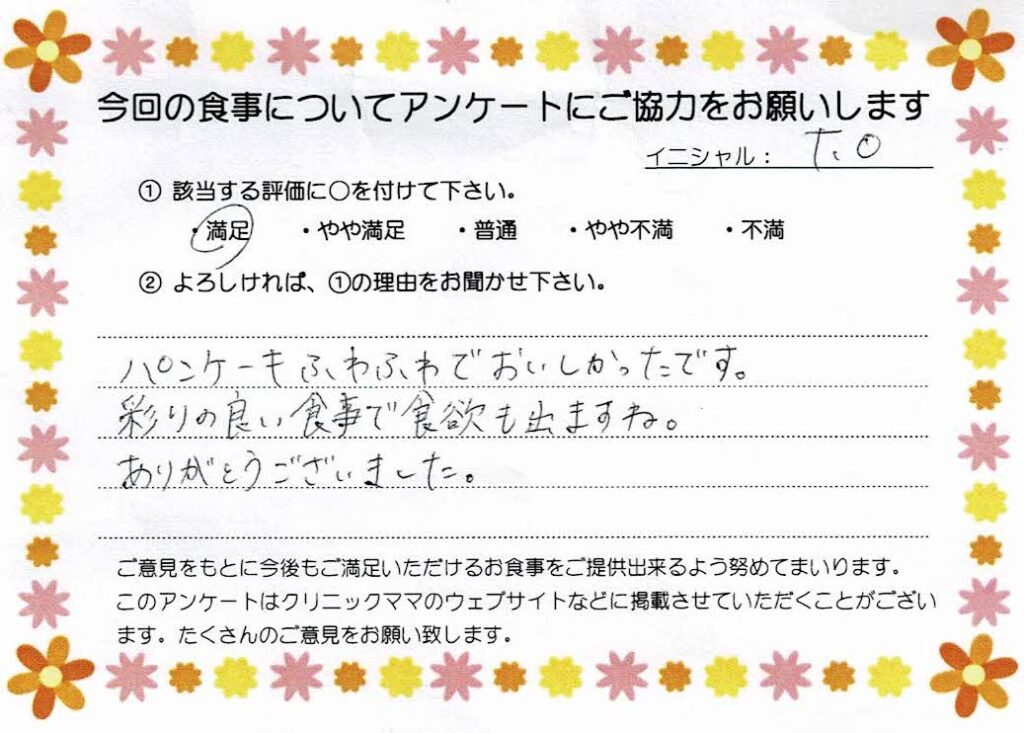 今回の食事についてアンケートにご協力をお願いします
イニシャル： T.O
① 該当する評価に○を付けて下さい。
・満足 ・やや満足 ・普通 ・やや不満 ・不満
② よろしければ、①の理由をお聞かせ下さい。
パンケーキふわふわでおいしかったです。
彩りの良い食事で食欲も出ますね。
ありがとうございました。
ご意見をもとに今後もご満足いただけるお食事をご提供出来るよう努めてまいります。
このアンケートはクリニックママのウェブサイトなどに掲載させていただくことがござい
ます。たくさんのご意見をお願い致します。